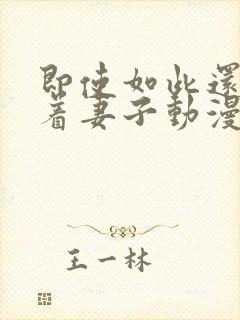 即使如此還
着妻子動漫
王一林